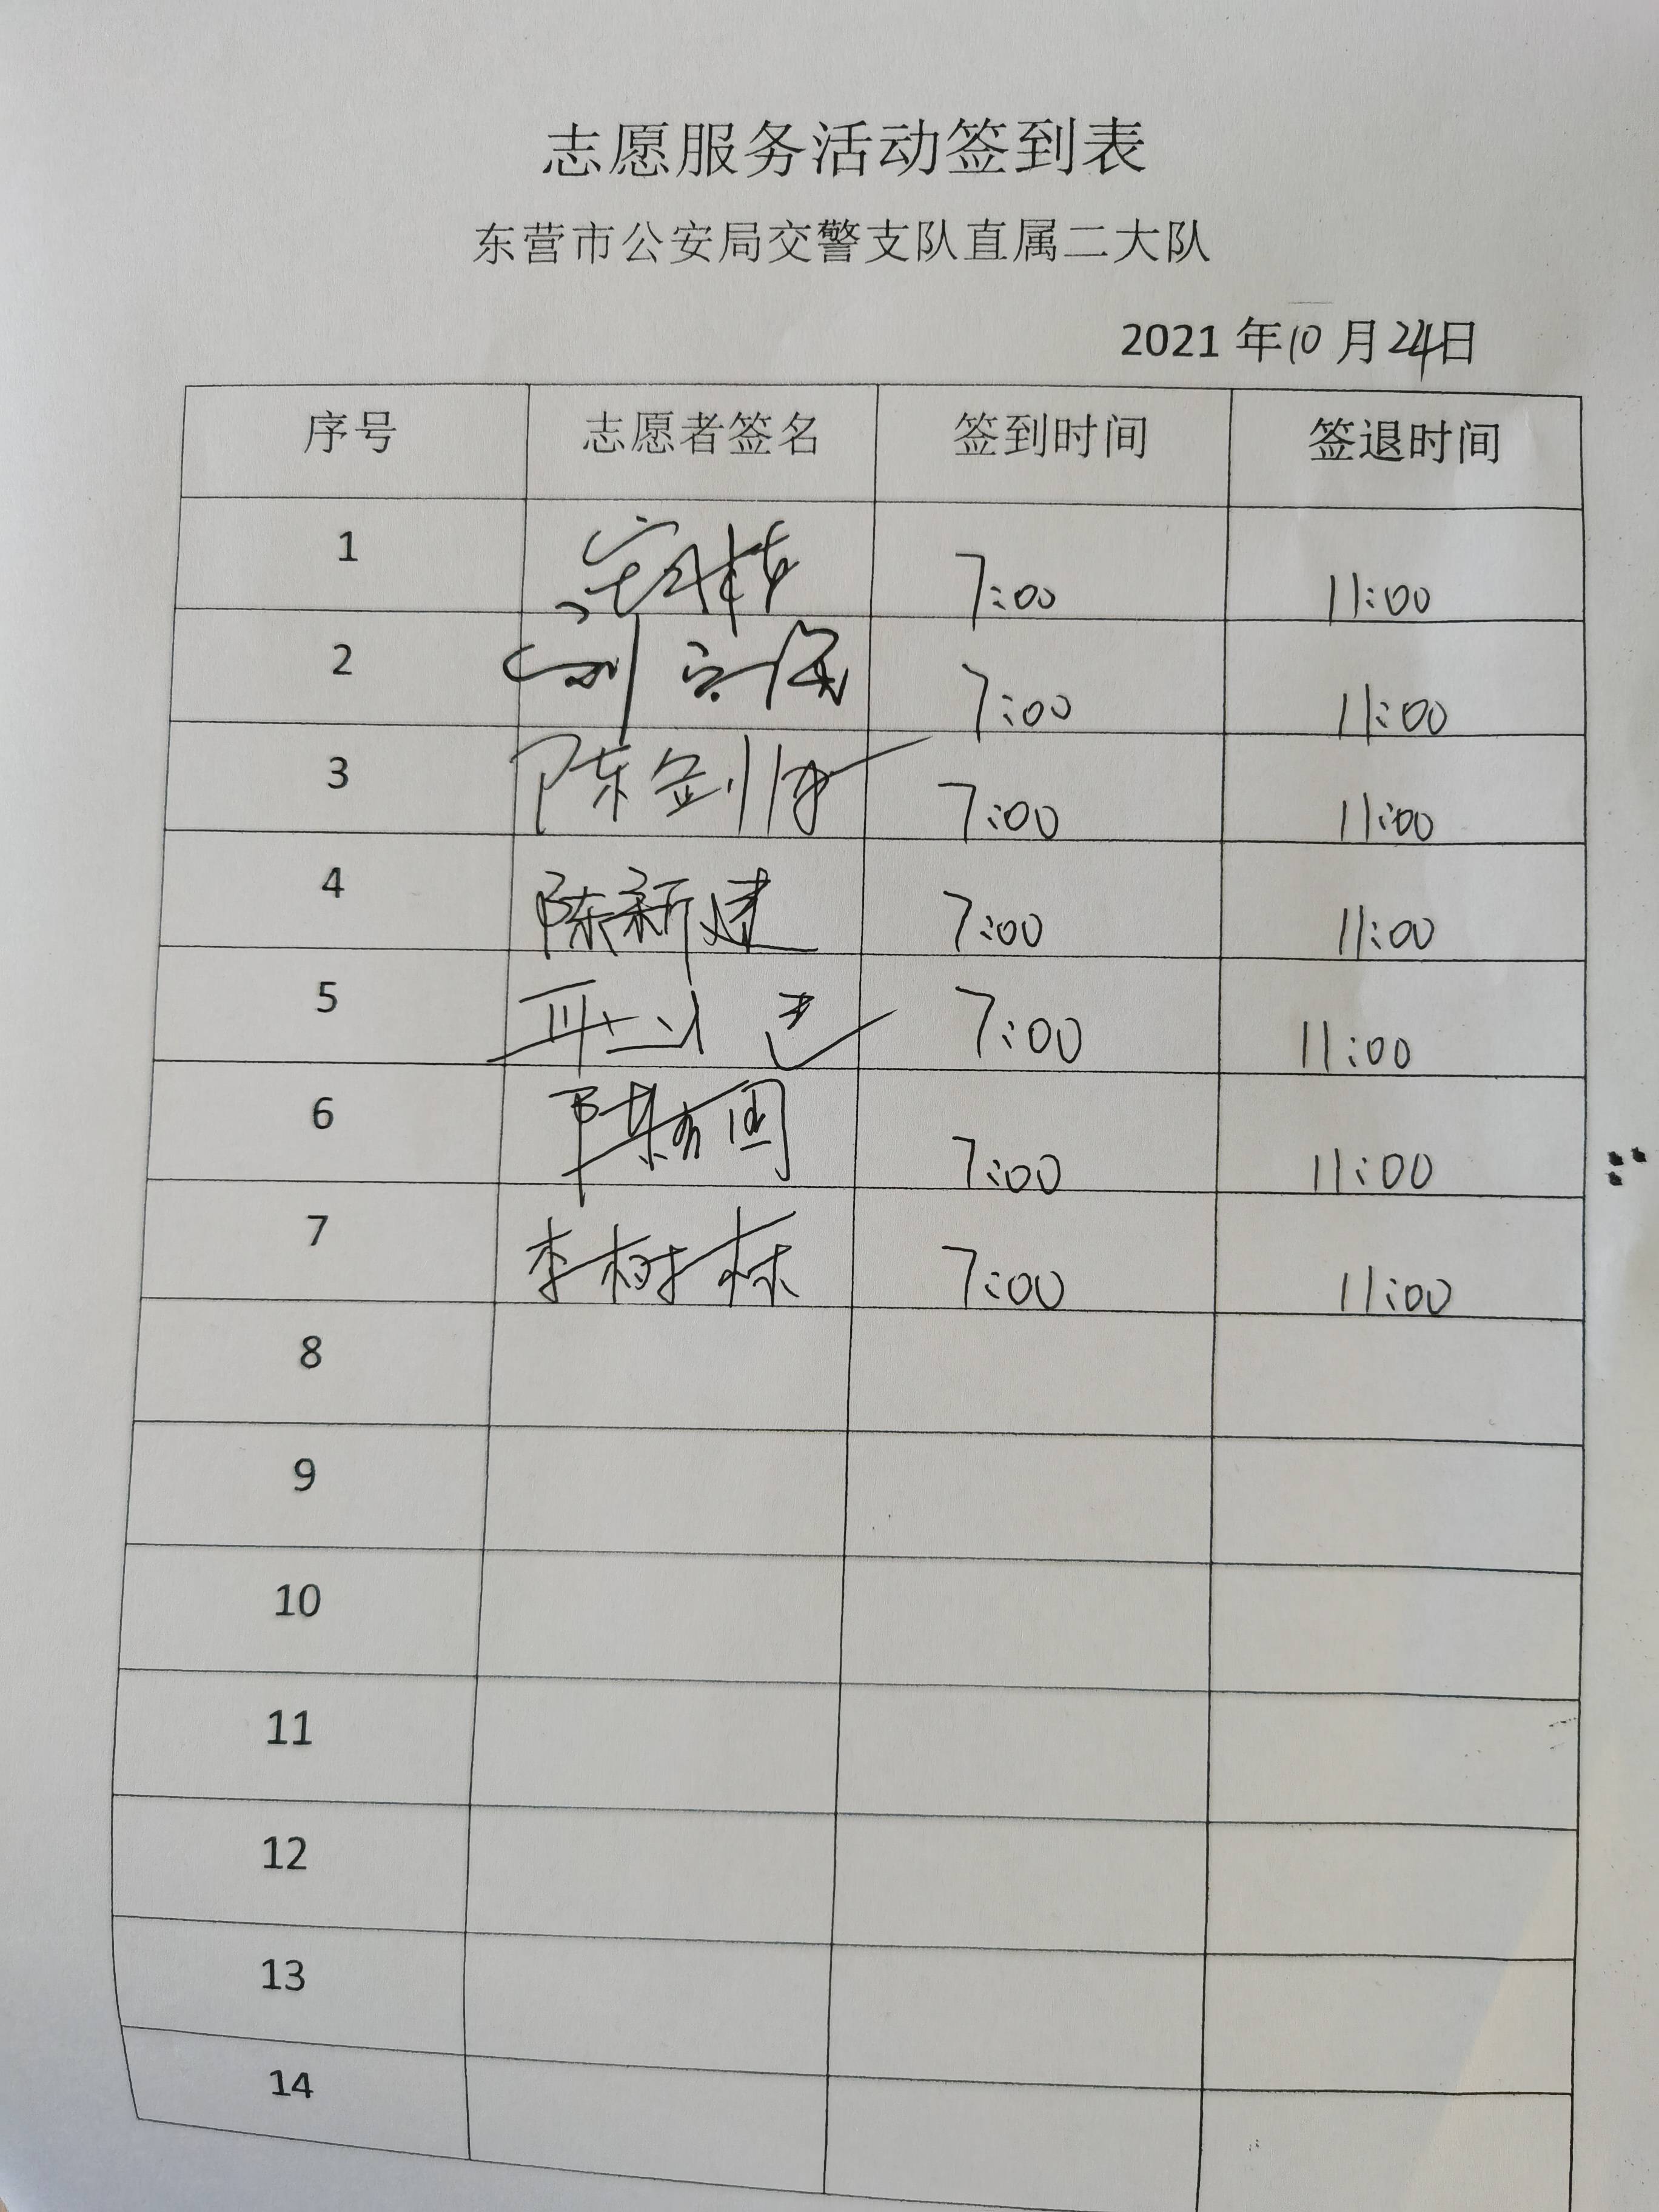 志愿服务活动签到表
东营市公安局交警支队直属二大队
2021 年 10 月 24 日
序号 志愿者签名 签到时间 签退时间
1 7:00 11:00
2 刘 7:00 11:00
3 陈剑 7:00 11:00
4 陈新建 7:00 11:00
5 7:00 11:00
6 7:00 11:00
7 李树栋 7:00 11:00
8
9
10
11
12
13
14